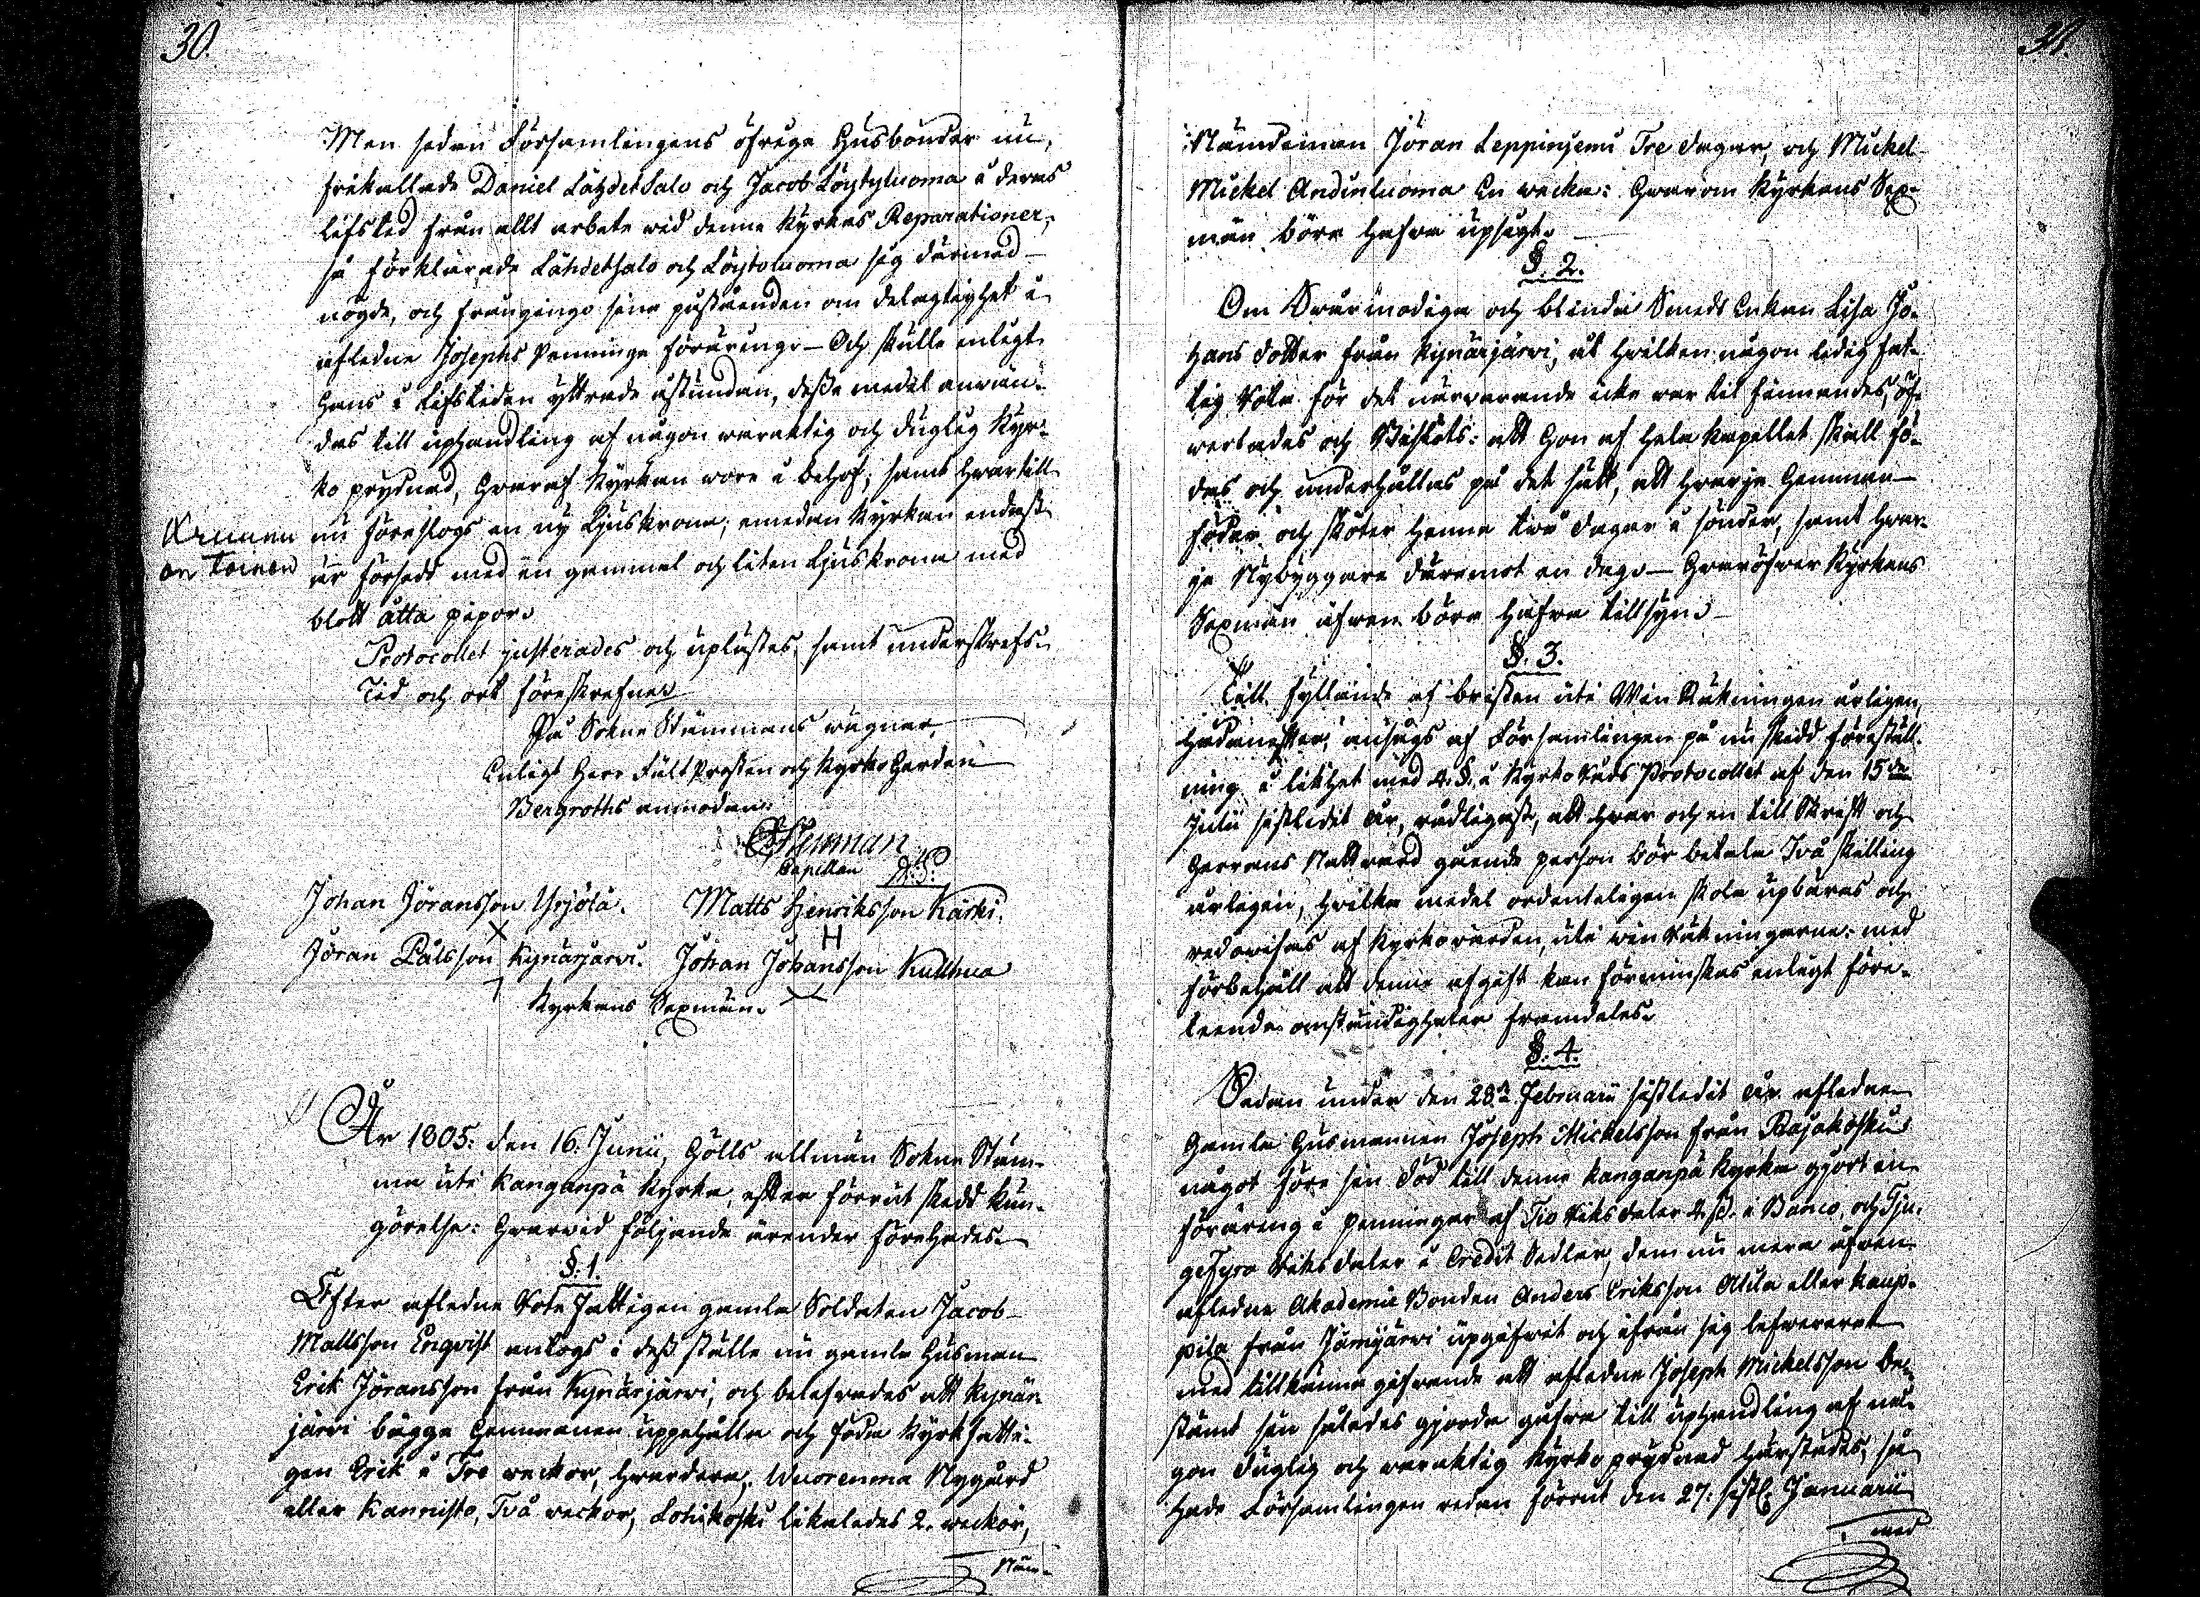 30.
Men sedan Församlingens öfrige Husbönder nu,
frikallade Daniel Lähdetsalo och Jacob Löytyluoma i deras
lifstid från allt arbete wid denne Kyrkas Reparationer,
så förklarade Lähdetsalo och Löytoluoma sig därmed
nögde, och frångingo sine påståenden om delagtighet i
afledne Josephs Penninge förärings. Och skulle enligt
Hans i lifstiden yttrade åstundan, desse medel anwän-
das till uphandling af någon waraktig och duglig Kyr-
ko prydnad, Hwaraf Kyrkan wore i behof; samt Hwartill
nu föreslogs en ny Ljuskrona; emedan Kyrkan endast
är försedd med en gammal och liten Ljuskrona med
blott åtta pipor.
Kruunu
on toinen
Protocollet justerades och uplästes, samt underskrefs.
Tid och ort föreskrefne
På Sokne Stämmans wägnar,
Enligt Herr Fält Prosten och Kyrko Herden
Bergroths anmodan
Nyman
Capellan
Johan Jöransson Yrjölä. Matts Henriksson Kärki.
Jöran Pålsson Kynäsjärwi. Johan Johansson Kullhua
Kyrkans Sexmän.
År 1805: den 16. Junii, Hölls allmän Sokne Stäm-
ma uti Kanganpä Kyrka, efter förrut skedd kun-
görelse: Hwarwid följande ärender förehades.
§. 1.
Efter afledne Rote Fattigen gamla Soldaten Jacob
Mattsson Enqvist antogs i dess ställe nu gamle Husman
Erik Jöransson från Kynäsjärwi, och belefwades att Kynäs-
järwi bägge Hemmanen uppehålla och föda Kyrkfatti-
gen Erik i Tre weckor, hwardera, Wuorenma Nygård
eller Kannisto, Två weckor, Lohikoski likaledes 2. weckor,
Näm-
31.
Nämdeman Jöran Leppinjemi Tre dagar, och Mickel
Mickel Andinluoma En wecka: Hwarom Kyrkans Sex-
män böra Hafwa upsigt.
§. 2.
Om Swårmodiga och blinda Smeds Enkan Lisa Jo-
hans dotter från Kynäsjärwi, åt hwilken någon ledig fat-
tig Rota för det närwarande icke war til finnandes, öf-
werlades och Beslöts: att Hon af hela Kapellet skall fö-
das och underhållas på det sätt, att hwarje Hemman
föder och sköter Henne twå dagar i sönder, samt Hwar-
je Nybyggare däremot en dag. Hwaröfwer Kyrkans
Sexmän äfwen böra Hafwa tillsyn.
§. 3.
Till fyllande af bristen uti Win Räkningen årligen
hädanefter, ansågs af Församlingen på nu skedd föreställ-
ning i likhet med 4. §. i Kyrko Råds Protocollet af den 15de
Julii sistledit år, rådligast, att hwar och en till Skrift och
Herrans Nattward gående person bör betala Två skilling
årligen, hwilka medel ordenteligen skola upbäras och
redowisas af Kyrkowärden, uti win räkningarne: med
förbehåll att denne afgift kan förminskas enligt före-
leende omständigheter framdeles.
§. 4.
Sedan under den 28de Februarii sistledit år aflidne
Gamle Husmannen Joseph Mickelsson från Rajakoski
något före sin död till denne Kanganpä Kyrka gjort en
föräring i penningar af Tio Riksdaler 2. ß. i Banco, och Tju-
gefyra Riksdaler i Credit Sedlar, dem nu mera äfwen
aflidne Akademie Bonden Anders Eriksson Alila eller Kaup-
pila från Jämijärwi upgifwit och ifrån sig lefwererat
med tillkänna gifwande att aflidne Joseph Mickelsson be-
stämt sin således gjorda gåfwa till uphandling af nå-
gon duglig och waraktig Kyrko prydnad härstädes, så
hade Församlingen redan förrut den 27. sistl. Januarii
med